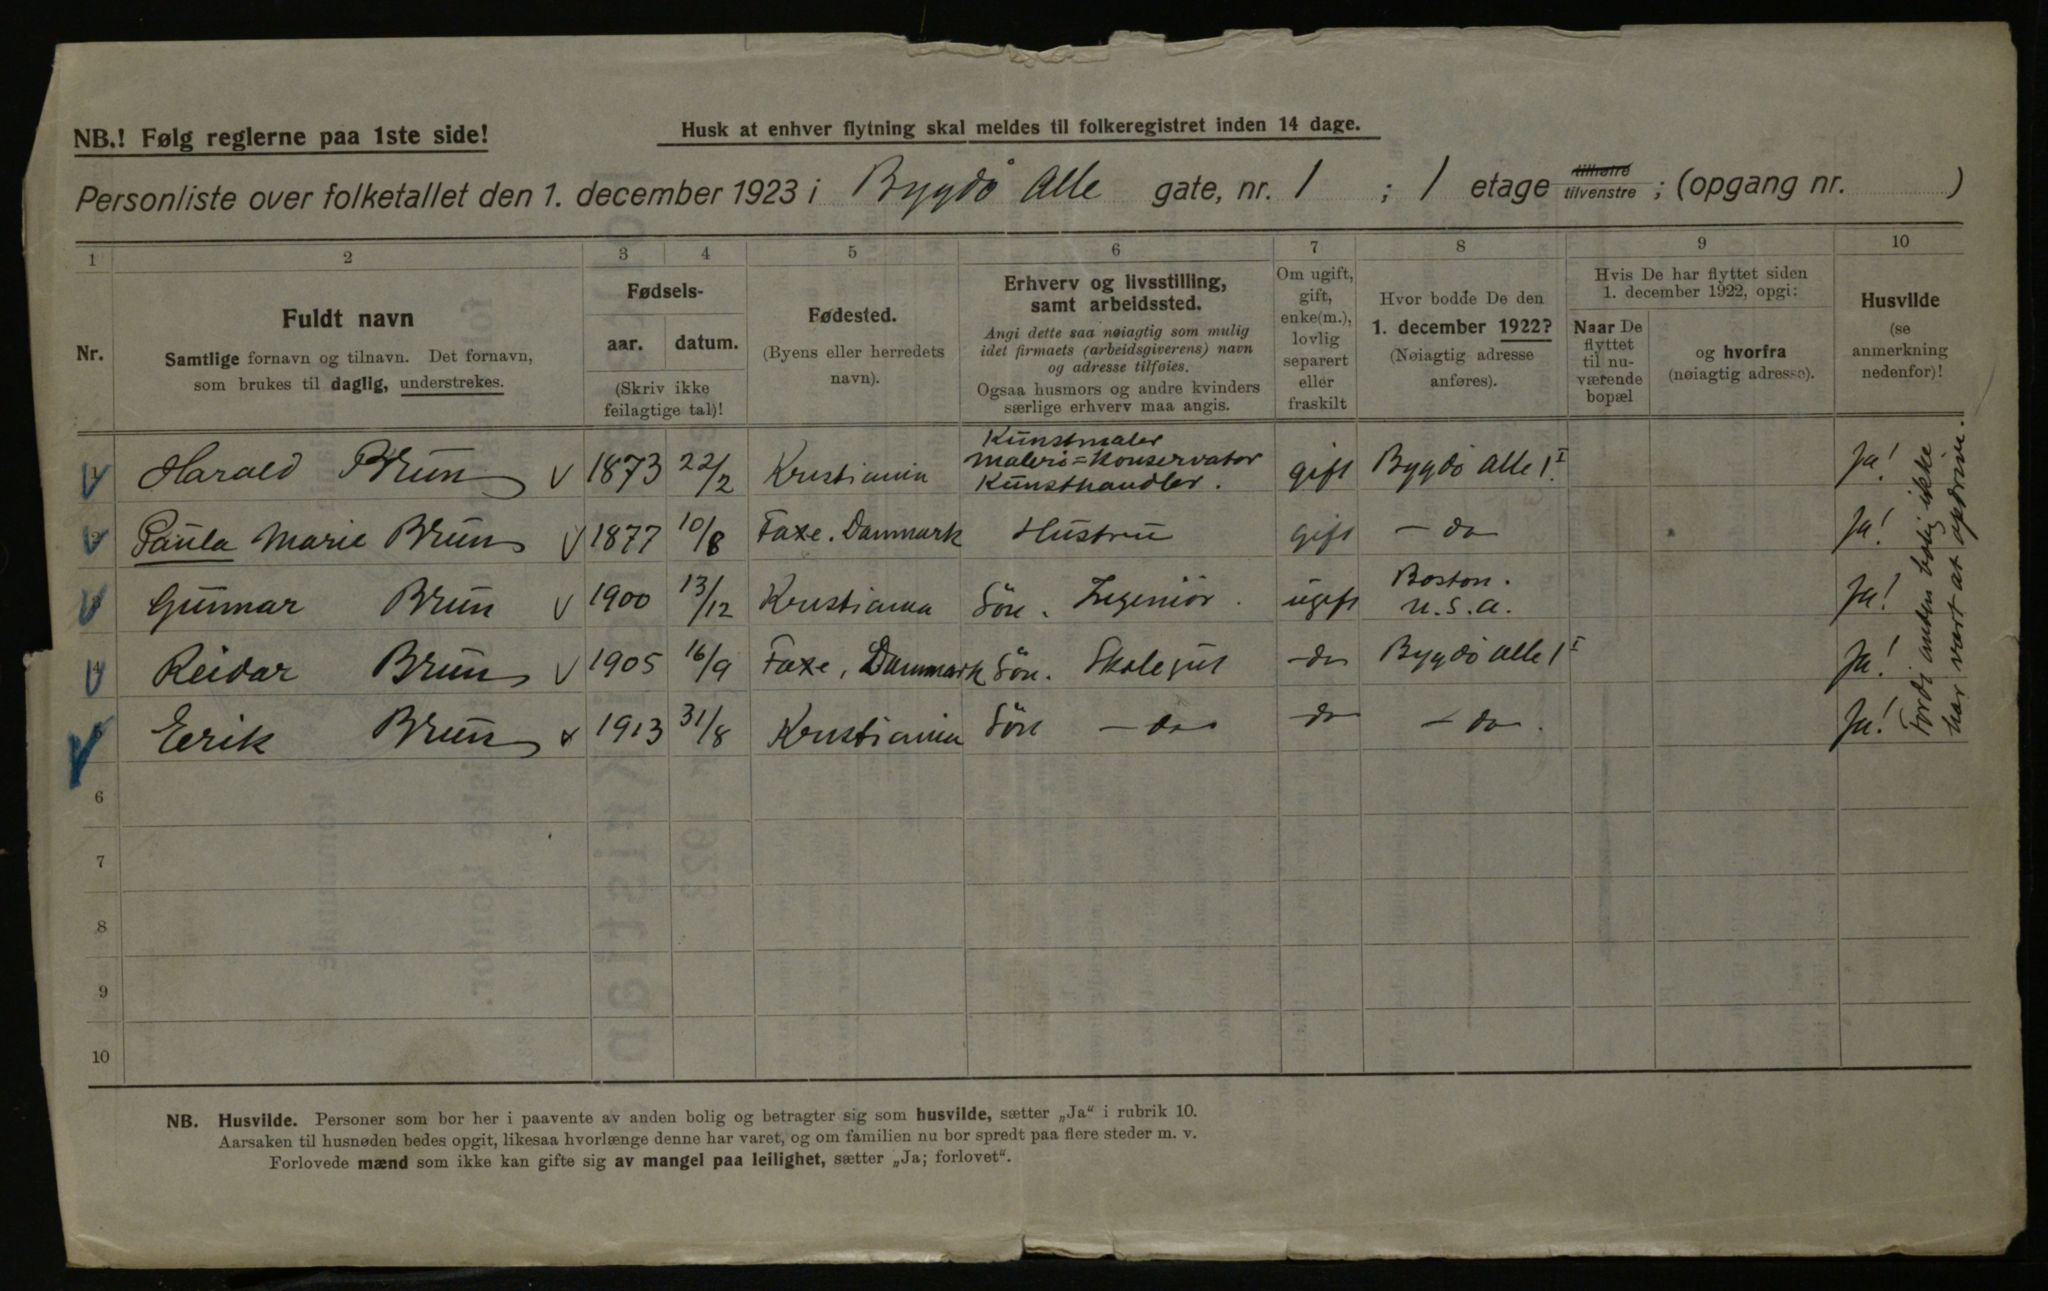 NB.! Følg reglerne paa 1ste side!
Husk at enhver flytning skal meldes til folkeregistret inden 14 dage.
Personliste over folketallet den 1. december 1923 i Bygdö Alle gate, nr. 1 ; 1 etage tilhøire tilvenstre ; (opgang nr. )
1 2 3 4 5 6 7 8 9 10
Nr.
Fuldt navn
Samtlige fornavn og tilnavn. Det fornavn,
som brukes til daglig, understrekes.
Fødsels-
aar. datum.
(Skriv ikke
feilagtige tal)!
Fødested.
(Byens eller herredets
navn).
Erhverv og livsstilling,
samt arbeidssted.
Angi dette saa nøiagtig som mulig
idet firmaets (arbeidsgiverens) navn
og adresse tilføies.
Ogsaa husmors og andre kvinders
særlige erhverv maa angis.
Om ugift,
gift,
enke(m.),
lovlig
separert
eller
fraskilt
Hvor bodde De den
1. december 1922?
(Nøiagtig adresse
anføres).
Hvis De har flyttet siden
1. december 1922, opgi:
Naar De
flyttet
til nu-
værende
bopæl
og hvorfra
(nøiagtig adresse).
Husvilde
(se
anmerkning
nedenfor)!
1 Harald Brun V 1873 22/2 Kristiania Kunstmaler maleri=Konservator Kunsthandler. gift Bygdö Alle 1 I Ja!
2 Paula Marie Brun V 1877 10/8 Faxe. Danmark Hustru gift - do Ja!
3 Gunnar Brun V 1900 13/12 Kristiania Sön. Ingeniör. ugift Boston. U.S.A. Ja!
4 Reidar Brun V 1905 16/9 Faxe, Danmark Sön. Skolegut -do Bygdö Alle 1 I Ja!
5 Eerik Brun x 1913 31/8 Kristiania Sön - do do - do. Ja!
Fordi anden bolig ikke
har vært at opdrive.
6
7
8
9
10
NB. Husvilde. Personer som bor her i paavente av anden bolig og betragter sig som husvilde, sætter „Ja“ i rubrik 10.
Aarsaken til husnøden bedes opgit, likesaa hvorlænge denne har varet, og om familien nu bor spredt paa flere steder m. v.
Forlovede mænd som ikke kan gifte sig av mangel paa leilighet, sætter „Ja; forlovet“.